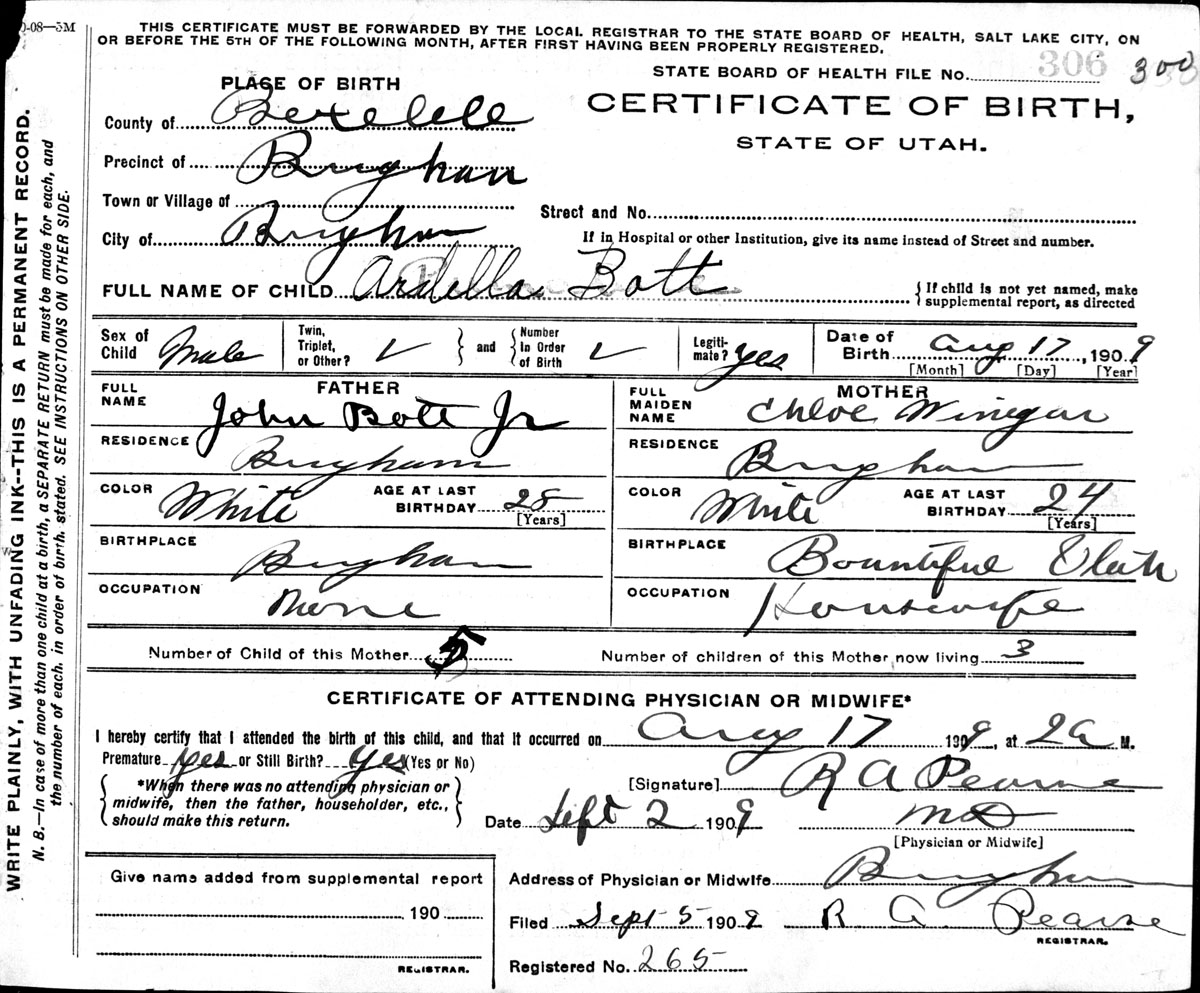 0-08—3M
THIS CERTIFICATE MUST BE FORWARDED BY THE LOCAL REGISTRAR TO THE STATE BOARD OF HEALTH, SALT LAKE CITY, ON
OR BEFORE THE 5TH OF THE FOLLOWING MONTH, AFTER FIRST HAVING BEEN PROPERLY REGISTERED.
STATE BOARD OF HEALTH FILE No. 306 300
PLACE OF BIRTH
CERTIFICATE OF BIRTH,
STATE OF UTAH.
County of Boxelder
Precinct of Brigham
Town or Village of
Street and No.
City of Brigham
If in Hospital or other Institution, give its name instead of Street and number.
FULL NAME OF CHILD Ardella Bott
{ If child is not yet named, make
supplemental report, as directed
Sex of Child Male
Twin, Triplet, or Other? ✓
and
Number In Order of Birth ✓
Legiti-mate? yes
Date of Birth Aug 17, 1909
[Month] [Day] [Year]
FATHER
FULL NAME John Bott Jr
RESIDENCE Brigham
COLOR White
AGE AT LAST BIRTHDAY 28
[Years]
BIRTHPLACE Brigham
OCCUPATION None
MOTHER
FULL MAIDEN NAME Chloe Winegar
RESIDENCE Brigham
COLOR White
AGE AT LAST BIRTHDAY 24
[Years]
BIRTHPLACE Bountiful Utah
OCCUPATION Housewife
Number of Child of this Mother 5
Number of children of this Mother now living 3
CERTIFICATE OF ATTENDING PHYSICIAN OR MIDWIFE*
I hereby certify that I attended the birth of this child, and that it occurred on Aug 17 1909, at 2 a M.
Premature yes or Still Birth? Yes (Yes or No)
*When there was no attending physician or
midwife, then the father, householder, etc.,
should make this return.
[Signature] R A Pearse
Date Sept 2 1909 MD
[Physician or Midwife]
Give name added from supplemental report
190
REGISTRAR.
Address of Physician or Midwife Brigham
Filed Sept 5 1909 R A Pearse
REGISTRAR.
Registered No. 265
WRITE PLAINLY, WITH UNFADING INK--THIS IS A PERMANENT RECORD.
N. B.—In case of more than one child at a birth, a SEPARATE RETURN must be made for each, and
the number of each, in order of birth, stated. SEE INSTRUCTIONS ON OTHER SIDE.